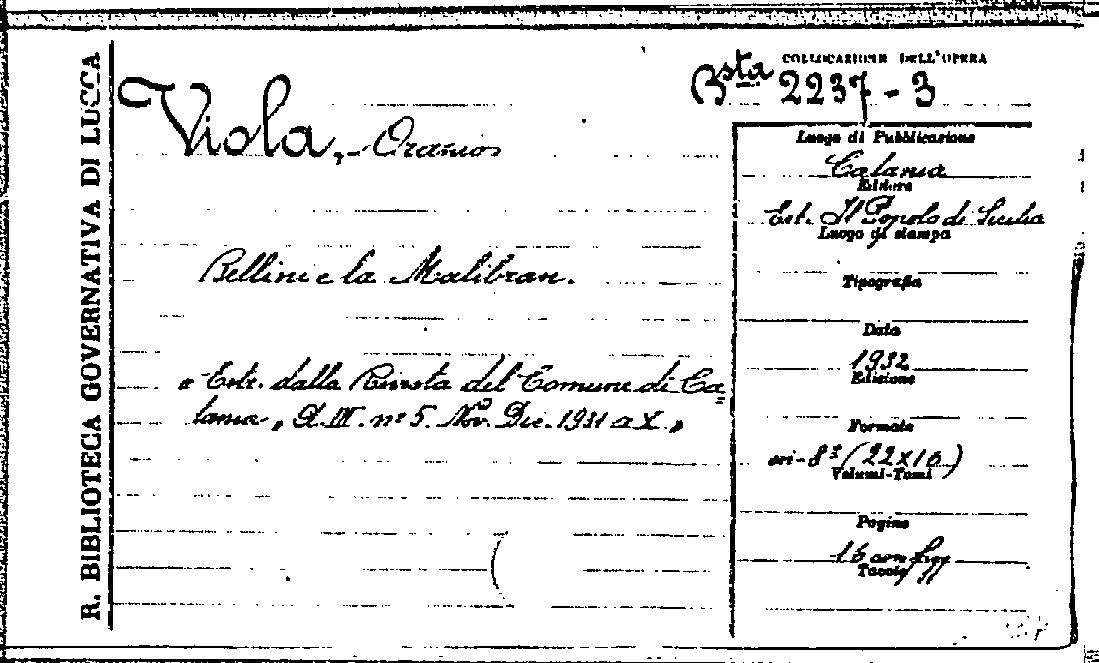 R. BIBLIOTECA GOVERNATIVA DI LUCCA
COLLOCAZIONE DELL'OPERA
Bsta 2237 - 3
Viola, - Orazio
Bellini e la Malibran.
« Estr. dalla Rivista del Comune di Ca
tania „ A. III. nº 5. Nov. Dic. 1931 a X. „
Luogo di Pubblicazione
Catania
Editore
Est. Il Popolo di Sicilia
Luogo di stampa
Tipografia
Data
1932
Edizione
Formato
in-8º (22x16)
Volumi-Tomi
Pagine
16 con figg
Tavole